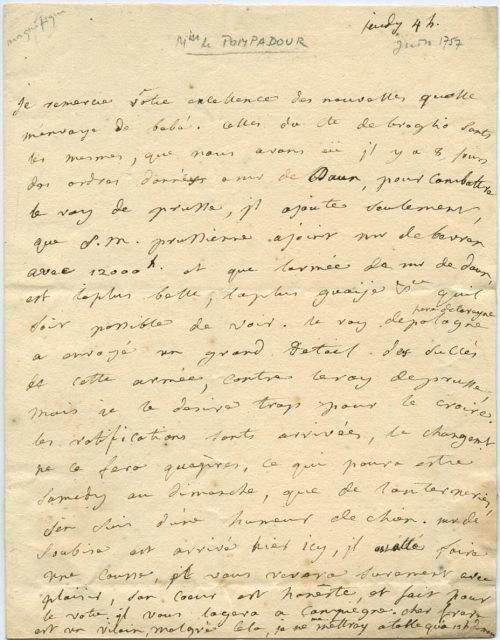 magnifique
jeudy 4 h.
Mise de POMPADOUR
Juin 1757
je remercie votre excellence des nouvelles quelle
menvoye de bebé. celles du cte de broglio sont
les mesmes, que nous avons eü il y a 8 jours
des ordres donnés a mr de Daun, pour combattre
le roy de prusse, il ajoute seulement,
que S. m. prussienne a joint mr de bevern
avec 12000 h. et que larmée de mr de daun,
est laplus belle, laplus quil
soit possible de voir. le roy de pologne
a envoyé un grand detail des succès
de cette armée, contre le roy de prusse
mais je le desire trop pour le croire.
les ratifications sont arrivées, le changemt
ne se fera que ce qui poura estre
samedy ou dimanche, que de lanterneries,
jen suis dune humeur de chien. mr de
soubise est arrivé hier icy, il faire
une course, il vous verera surement avec
plaisir, son coeur est honeste, et fait pour
le votre, il vous logera a Compiegne. cher
est un vilain, malgré cela, je ne mettray a table qua